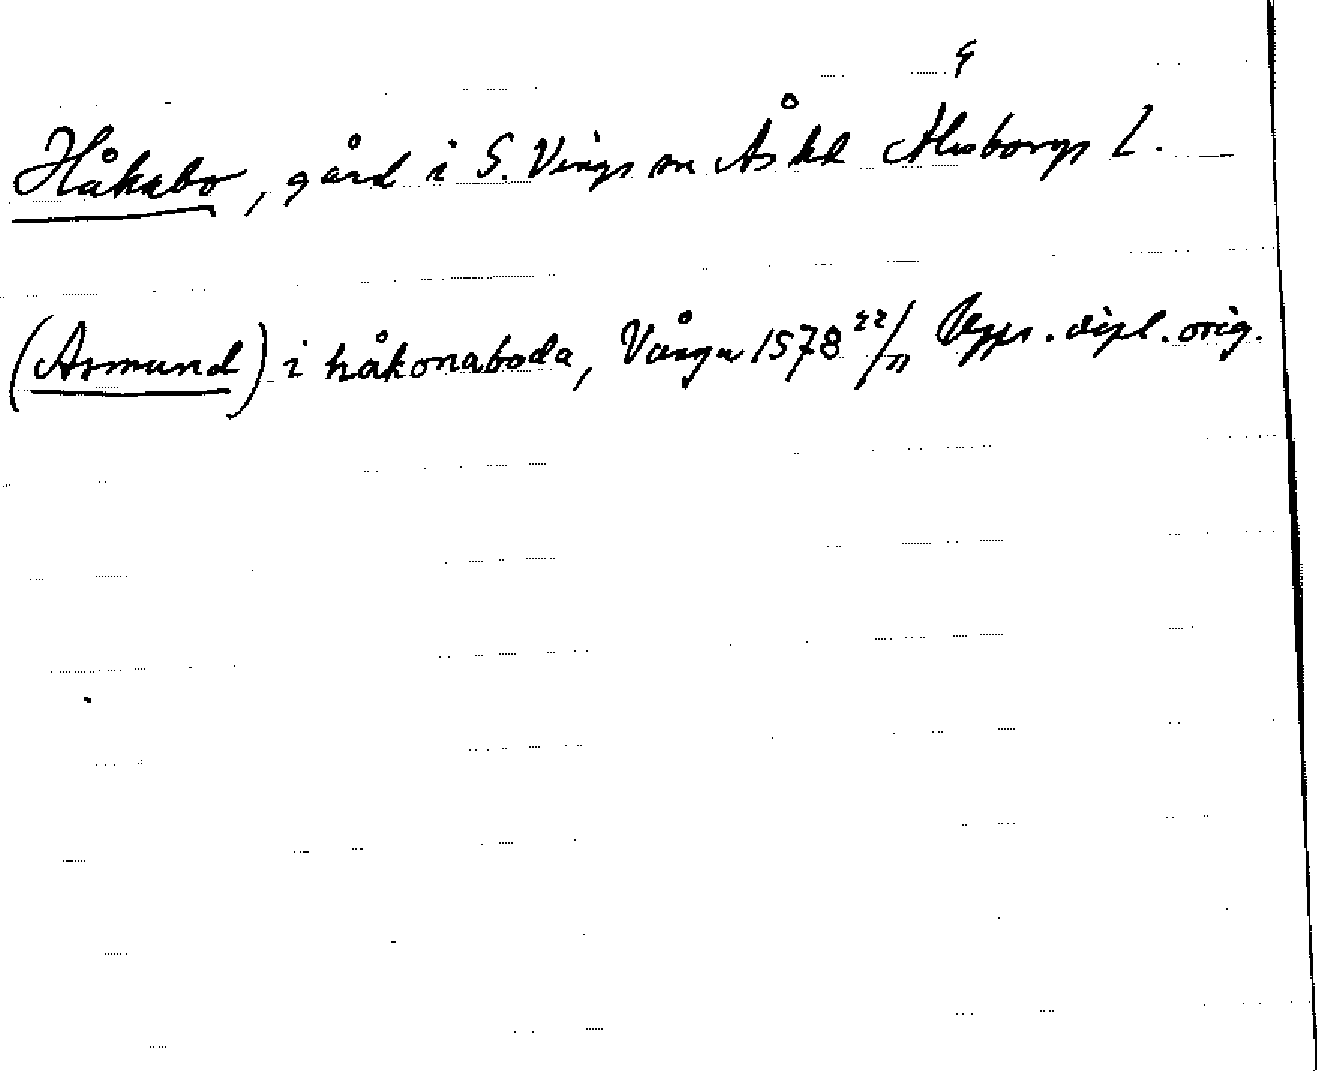 Håkabo, gård i S. Vings sn Ås hd Älvsborgs L.
(Asmund) i håkonaboda, Vånga 1578 22/11 Upps. dipl. orig.